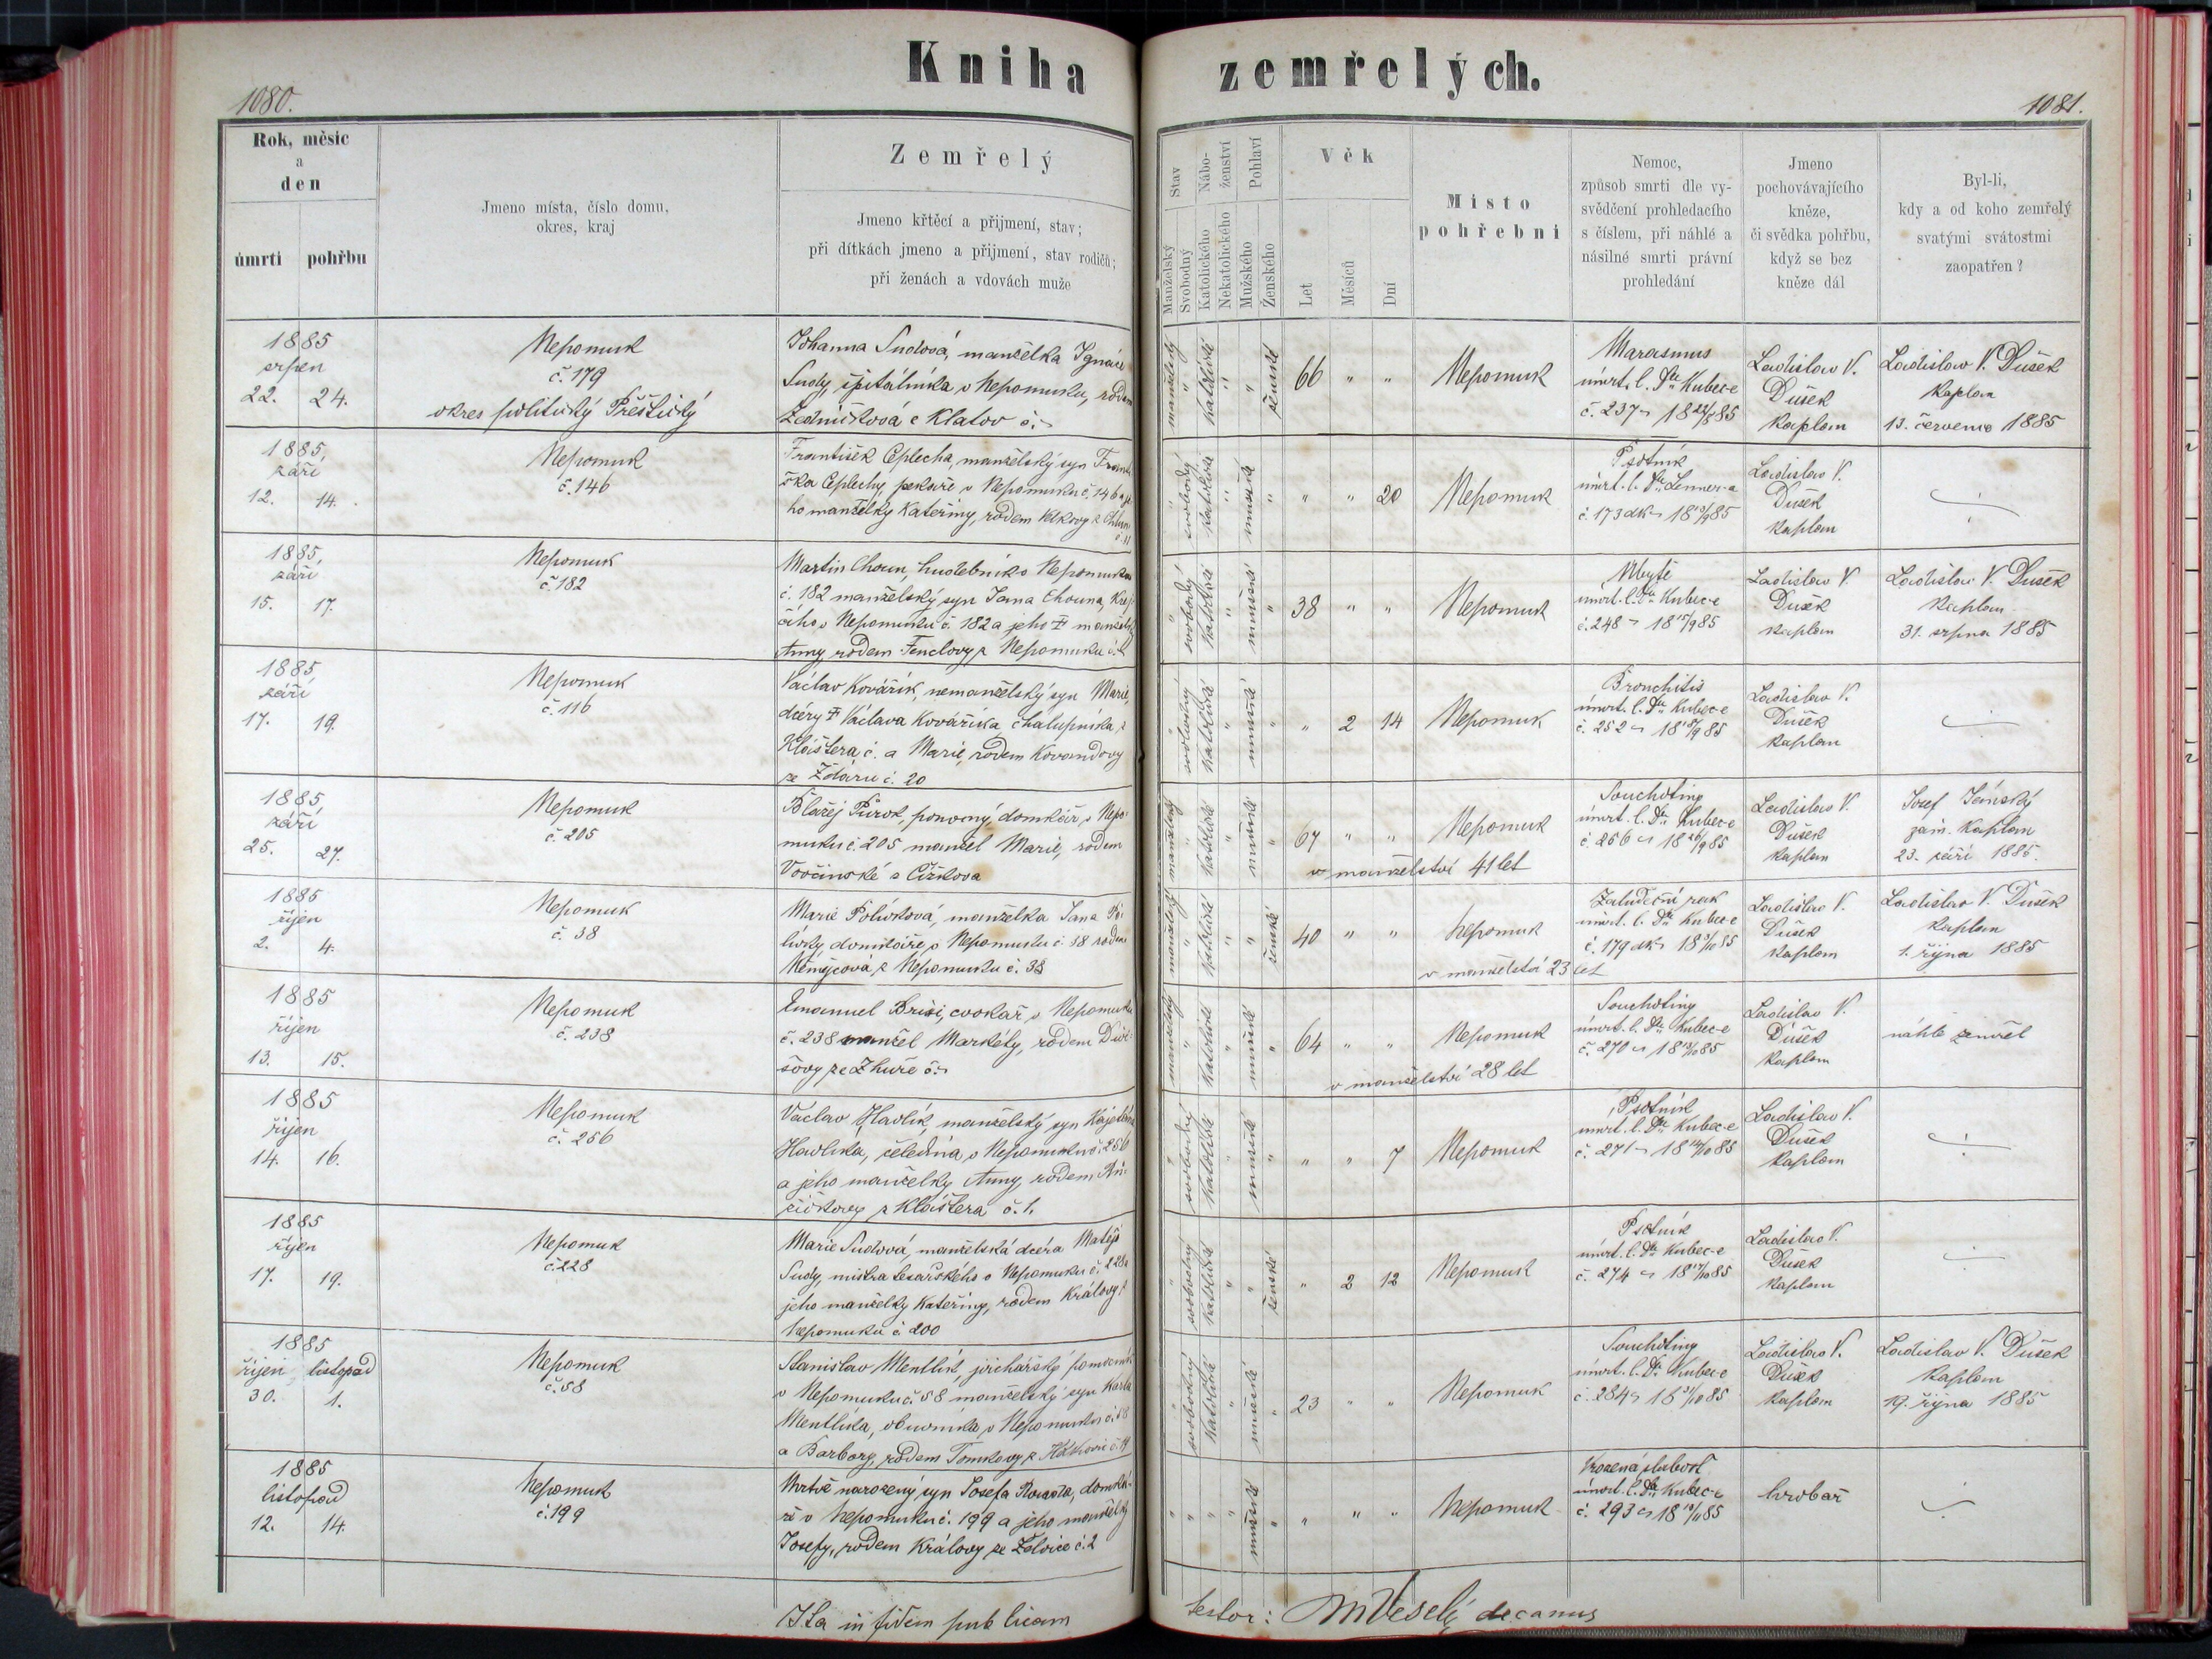 Kniha zemřelých.
1080.
1081.
Rok, měsíc
a
den
úmrtí pohřbu
Jmeno místa, číslo domu,
okres, kraj
Zemřelý
Jmeno křtěcí a přijmení, stav;
při dítkách jmeno a přijmení, stav rodičů;
při ženách a vdovách muže
Stav
Manželský
Svobodný
Nábo-
ženství
Katolického
Nekatolického
Pohlaví
Mužského
Ženského
Věk
Let
Měsíců
Dní
Místo
pohřební
Nemoc,
způsob smrti dle vy-
svědčení prohledacího
s číslem, při náhlé a
násilné smrti právní
prohledání
Jmeno
pochovávajícího
kněze,
či svědka pohřbu,
když se bez
kněze dál
Byl-li,
kdy a od koho zemřelý
svatými svátostmi
zaopatřen?
1885
srpen
22. 24.
Nepomuk
č. 179
okres politický Přeštický
Johanna Sudová, manželka Ignáce
Sudy, špitálníka v Nepomuku, rodem
z Klatov č. –
manželský " katolické " " ženské
66 " "
Nepomuk
Marasmus
úmrt. l. Dra Kubec-e
č. 237 – 18 22/8 85
Ladislav V.
Dušek
kaplan
Ladislav V. Dušek
kaplan
13. července 1885
1885,
září
12. 14.
Nepomuk
č. 146
František Ceplecha, manželský syn Franti-
ška Ceplechy, pekaře v Nepomuku č. 146 a je-
ho manželky Kateřiny, rodem
" svobodný katolické " mužské "
" " 20
Nepomuk
Psotník
úmrt. l. Dra Lenner-a
č. 173 dk – 18 13/9 85
Ladislav V.
Dušek
kaplan
1885,
září
15. 17.
Nepomuk
č. 182
Martin Choun, hudebník v Nepomuku
č. 182 manželský syn Jana Chouna, krej-
čího v Nepomuku č. 182 a jeho † manželky
Anny rodem Fenclovy z Nepomuku č.
" svobodný katolické " mužské "
38 " "
Nepomuk
úmrt. l. Dra Kubec-e
č. 248 – 18 15/9 85
Ladislav V.
Dušek
kaplan
Ladislav V. Dušek
kaplan
31. srpna 1885
1885,
září
17. 19.
Nepomuk
č. 116
Václav Kovářík, nemanželský syn Marie,
dcery † Václava Kovaříka, chalupníka z
Kláštera č. a Marie, rodem Kovandovy
ze Ždáru č. 20
" svobodný katolické " mužské "
" 2 14
Nepomuk
Bronchitis
úmrt. l. Dra Kubec-e
č. 252 – 18 18/9 85
Ladislav V.
Dušek
kaplan
1885,
září
25. 27.
Nepomuk
č. 205
Blažej domkář v Nepo-
muku č. 205 manžel Marie, rodem
z Čížkova
manželský " katolické " mužské "
67 " "
Nepomuk
v manželství 41 let
Souchotiny
úmrt. l. Dra Kubec-e
č. 256 – 18 26/9 85
Ladislav V.
Dušek
kaplan
Josef
zám. kaplan
23. září 1885.
1885
říjen
2. 4.
Nepomuk
č. 38
Marie Polívková, manželka Jana Po-
lívky, domkáře v Nepomuku č. 38 rodem
Němejcová z Nepomuku č. 38
manželský " katolické " " ženské
40 " "
Nepomuk
v manželství 23 let
Žaludeční rak
úmrt. l. Dra Kubec-e
č. 179 dk – 18 3/10 85
Ladislav V.
Dušek
kaplan
Ladislav V. Dušek
kaplan
1. října 1885
1885
říjen
13. 15.
Nepomuk
č. 238
Emanuel Brisi, cvokař v Nepomuku
č. 238 manžel Markéty, rodem
ze Zhuře č. –
manželský " katolické " mužské "
64 " "
Nepomuk
v manželství 28 let
Souchotiny
úmrt. l. Dra Kubec-e
č. 270 – 18 13/10 85
Ladislav V.
Dušek
kaplan
náhle zemřel
1885
říjen
14. 16.
Nepomuk
č. 256
Václav Havlík, manželský syn Kajetána
Havlíka, čeledína, v Nepomuku č. 256
a jeho manželky Anny, rodem Rů-
žičkovy z Kláštera č. 1.
" svobodný katolické " mužské "
" " 7
Nepomuk
Psotník
úmrt. l. Dra Kubec-e
č. 271 – 18 14/10 85
Ladislav V.
Dušek
kaplan
1885
říjen
17. 19.
Nepomuk
č. 228
Marie Sudová, manželská dcera Matěje
Sudy, mistra tesařského v Nepomuku č. 228 a
jeho manželky Kateřiny, rodem Královy z
Nepomuku č. 200
" svobodný katolické " " ženské
" 2 12
Nepomuk
Psotník
úmrt. l. Dra Kubec-e
č. 274 – 18 17/10 85
Ladislav V.
Dušek
kaplan
1885
říjen listopad
30. 1.
Nepomuk
č. 58
Stanislav Mentlík, jirchářský pomocník
v Nepomuku č. 58 manželský syn Karla
Mentlíka, obuvníka v Nepomuku č. 58
a Barbory, rodem Tomkovy z
" svobodný katolické " mužské "
23 " "
Nepomuk
Souchotiny
úmrt. l. Dra Kubec-e
č. 284 – 18 31/10 85
Ladislav V.
Dušek
kaplan
Ladislav V. Dušek
kaplan
19. října 1885
1885
listopad
12. 14.
Nepomuk
č. 199
Mrtvě narozený syn Josefa domká-
ře v Nepomuku č. 199 a jeho manželky
Josefy, rodem Královy ze Želvice č. 2
" " " " mužské "
" " "
Nepomuk
Vrozená slabost
úmrt. l. Dra Kubec-e
č. 293 – 18 13/11 85
hrobař
Ita in fidem publicam
testor: M Veselý decanus